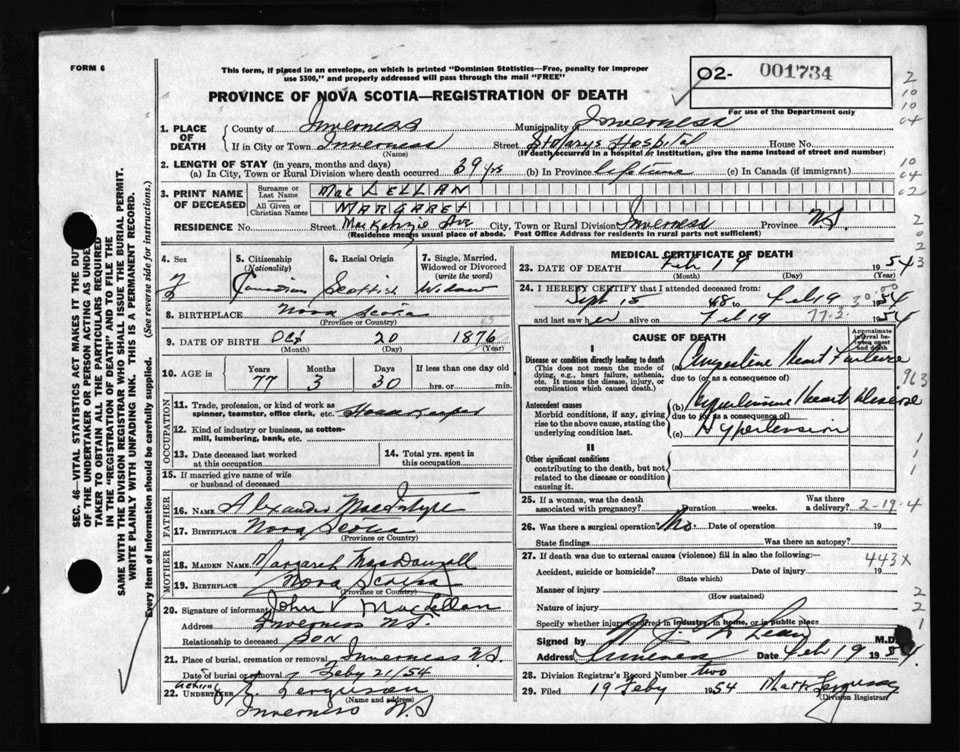 FORM 6
This form, if placed in an envelope, on which is printed "Dominion Statistics—Free, penalty for improper
use $300," and properly addressed will pass through the mail "FREE"
O2- 001734
For use of the Department only
PROVINCE OF NOVA SCOTIA—REGISTRATION OF DEATH
1. PLACE OF DEATH
County of Inverness Municipality of Inverness
If in City or Town Inverness Street St Marys Hospital House No.
(Name) (If death occurred in a hospital or institution, give the name instead of street and number)
2. LENGTH OF STAY (in years, months and days)
(a) In City, Town or Rural Division where death occurred 39 yrs (b) In Province lifetime (c) In Canada (if immigrant)
3. PRINT NAME OF DECEASED
Surname or Last Name MacLELLAN
All Given or Christian Names MARGARET
RESIDENCE No. Street MacKenzie Ave City, Town or Rural Division Inverness Province N.S.
(Residence means usual place of abode. Post Office Address for residents in rural parts not sufficient)
4. Sex 5. Citizenship (Nationality) 6. Racial Origin 7. Single, Married, Widowed or Divorced (write the word)
F Canadian Scottish Widow
8. BIRTHPLACE Nova Scotia
(Province or Country)
9. DATE OF BIRTH Oct 20 1876
(Month) (Day) (Year)
10. AGE in Years Months Days If less than one day old
77 3 30 hrs. or min.
OCCUPATION
11. Trade, profession, or kind of work as spinner, teamster, office clerk, etc. House Keeper
12. Kind of industry or business, as cotton-mill, lumbering, bank, etc.
13. Date deceased last worked at this occupation
14. Total yrs. spent in this occupation
15. If married give name of wife or husband of deceased
FATHER
16. NAME Alexander MacIntyre
17. BIRTHPLACE Nova Scotia
(Province or Country)
MOTHER
18. MAIDEN NAME Margaret MacDougall
19. BIRTHPLACE Nova Scotia
(Province or Country)
20. Signature of informant John V MacLellan
Address Inverness N.S.
Relationship to deceased SON
21. Place of burial, cremation or removal Inverness N.S.
Date of burial or removal Feby 21/54
22. Acting UNDERTAKER Ferguson
(Name and address)
Inverness N.S
MEDICAL CERTIFICATE OF DEATH
23. DATE OF DEATH Feb 19 1954
(Month) (Day) (Year)
24. I HEREBY CERTIFY that I attended deceased from:
Sept 15 48 to Feb 19 1954
and last saw her alive on Feb 19 1954
77.3.
CAUSE OF DEATH
Approximate interval between onset and death
I
Disease or condition directly leading to death
(This does not mean the mode of dying, e.g., heart failure, asthenia, etc. It means the disease, injury, or complication which caused death.)
(a) Congestive Heart Failure
due to (or as a consequence of)
963
Antecedent causes
Morbid conditions, if any, giving rise to the above cause, stating the underlying condition last.
(b) Hypertensive Heart Disease
due to (or as a consequence of)
(c) Hypertension
II
Other significant conditions
contributing to the death, but not related to the disease or condition causing it.
25. If a woman, was the death associated with pregnancy? Duration weeks. Was there a delivery? 2-19-4
26. Was there a surgical operation? No. Date of operation 19
State findings Was there an autopsy?
27. If death was due to external causes (violence) fill in also the following:— 443X
Accident, suicide or homicide? Date of injury 19
(State which)
Manner of injury
(How sustained)
Nature of injury
Specify whether injury occurred in industry, in home, or in public place
Signed by N. J. McLean M.D.
Address Inverness Date Feb 19 1954.
28. Division Registrar's Record Number two
29. Filed 19 Feby 1954
(Division Registrar)
SEC. 46—VITAL STATISTICS ACT MAKES IT THE DUTY
OF THE UNDERTAKER OR PERSON ACTING AS UNDER-
TAKER TO OBTAIN ALL THE PARTICULARS REQUIRED
IN THE "REGISTRATION OF DEATH" AND TO FILE THE
SAME WITH THE DIVISION REGISTRAR WHO SHALL ISSUE THE BURIAL PERMIT.
WRITE PLAINLY WITH UNFADING INK. THIS IS A PERMANENT RECORD.
Every item of information should be carefully supplied. (See reverse side for instructions.)